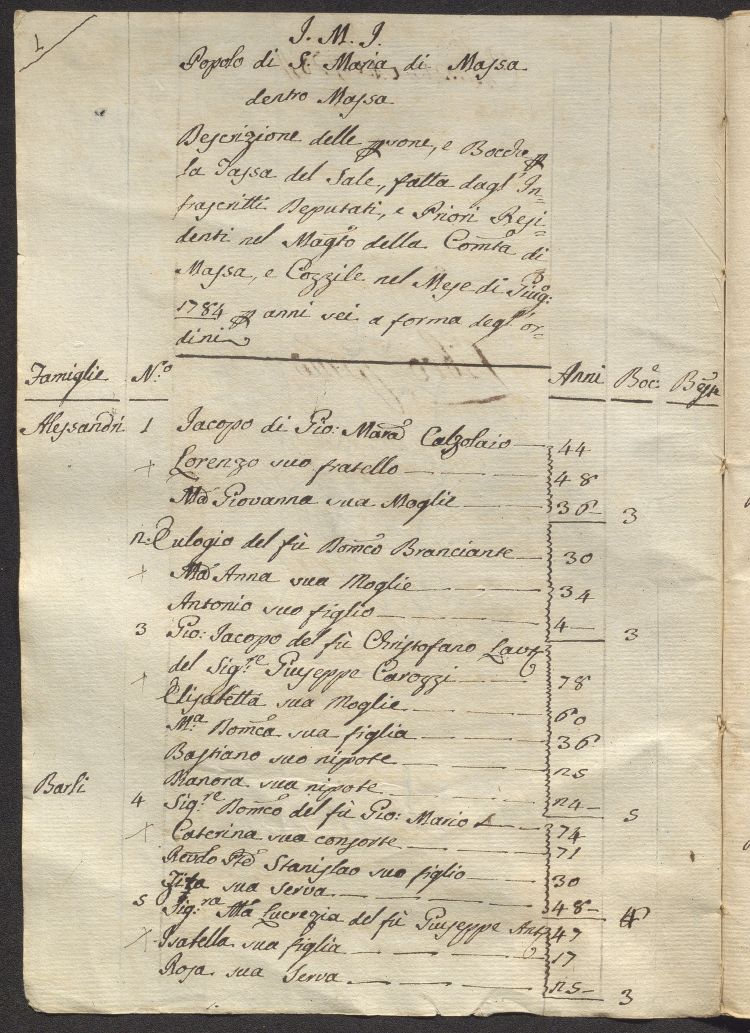 1
J. M. J.
Popolo di S. Maria di Massa
dentro Massa
Descrizione delle psone, e Bocche p
la Tassa del Sale, fatta dagl' In=
frascritti Deputati, e Priori Resi=
denti nel Magto della Comtà di
Massa, e Cozzile nel Mese di Giugo:
1784 p anni sei a forma degl' or=
dini
Famiglie No Anni Boc: Bestie
Alessandri 1 Jacopo di Gio: Marco Calzolaio 44
Lorenzo suo fratello 48
Ma Giovanna sua Moglie 36 3
2. Eulogio del fù Domco Branciante 30
Ma Anna sua Moglie 34
Antonio suo figlio 4 3
3 Gio: Jacopo del fù Christofano Lavre
del Sigre Giuseppe Carozzi 78
Elisabetta sua Moglie 60
Ma Domca sua figlia 36
Bastiano suo nipote 25
Dianora sua nipote 24 5
Barli 4 Sigre Domco del fù Gio: Mario 74
Caterina sua consorte 71
Revdo Pte Stanislao suo figlio 30
Zita sua Serva 48 4
5 Sigra Ma Lucrezia del fù Giuseppe Anto 47
Isabella sua figlia 17
Rosa sua Serva 25 3